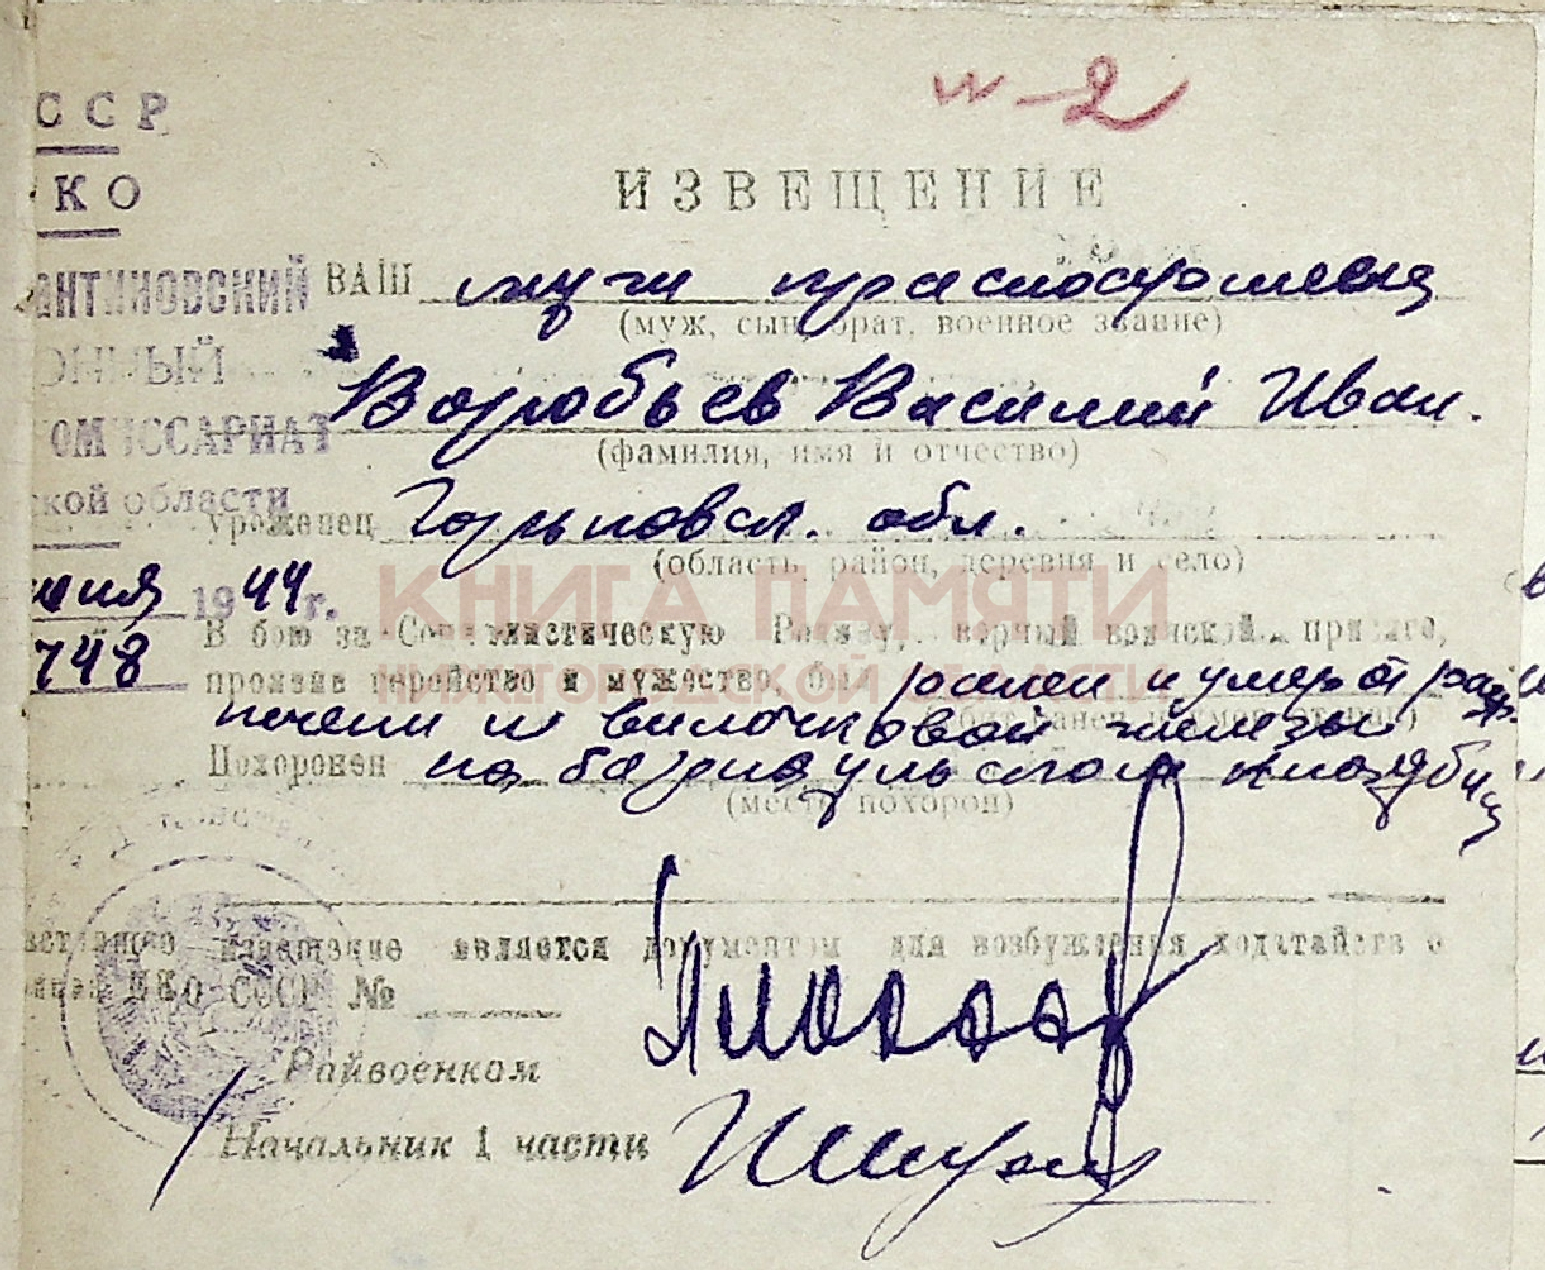 ССР
КО
и-2
ИЗВЕЩЕНИЕ
АНТИНОВСКИЙ
ВАШ муж красноармеец
(муж, сын, брат, военное звание)
ОННЫЙ
Воробьев Василий Иван.
ОМИССАРИАТ
(фамилия, имя и отчество)
ской области
уроженец Горьковск. обл.
(область, район, деревня и село)
1944 г.
КНИГА ПАМЯТИ
НИЖЕГОРОДСКОЙ ОБЛАСТИ
В бою за Социалистическую Родину, верный воинской присяге,
748
проявив геройство и мужество, был ранен и умер от
печени и вилочковой железы
Похоронен на барнаульском кладбищ
(место похорон)
извещение является документом для возбуждения ходатайств о
НКО СССР №
Райвоенком
Начальник 1 части